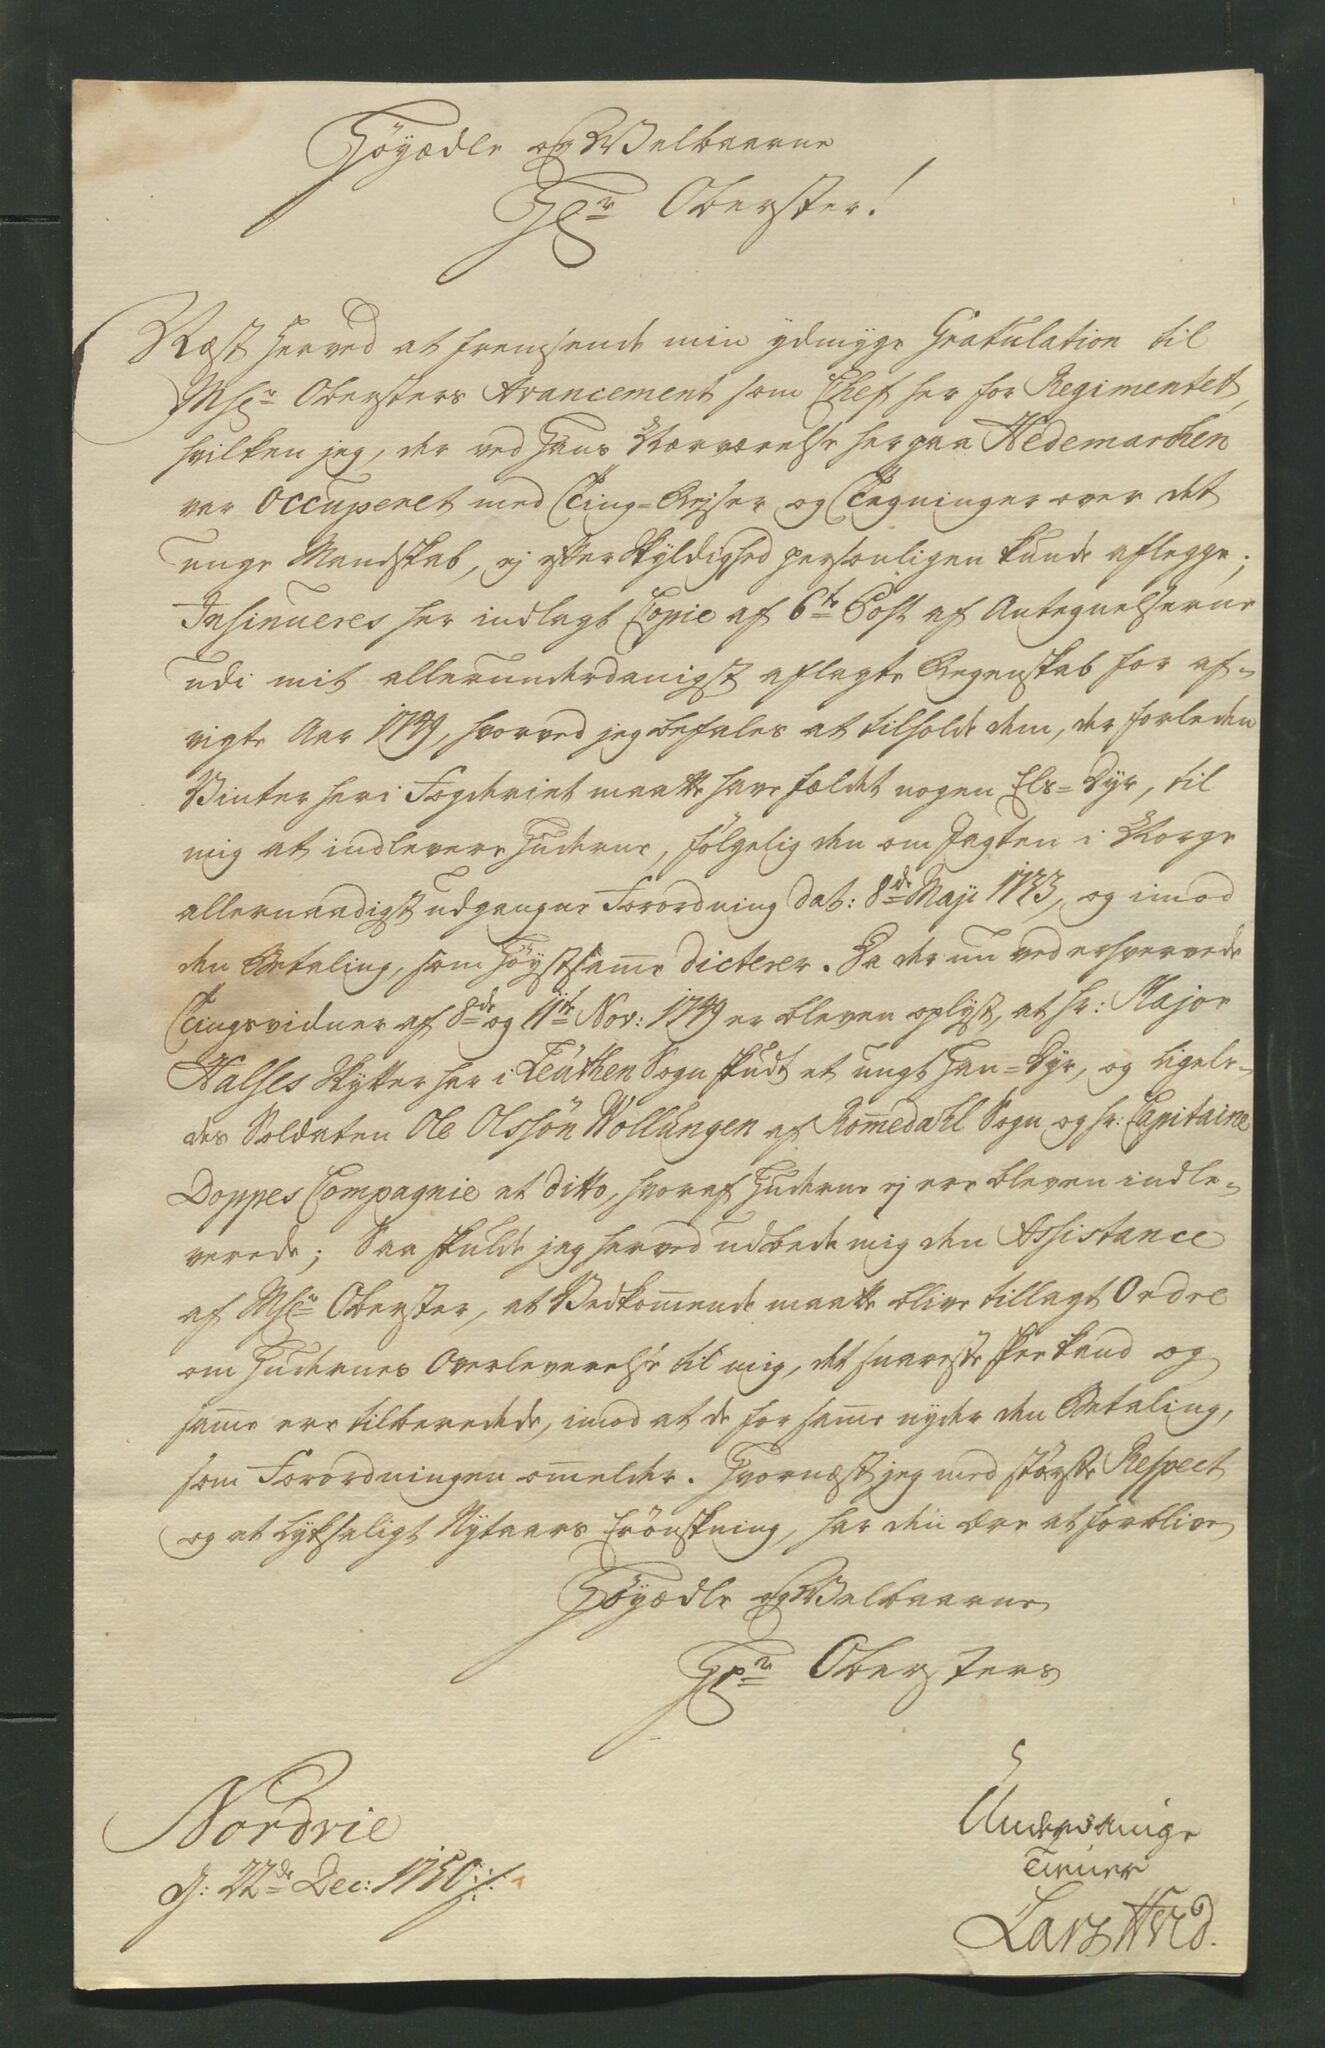 Höyædle og Welbaarne
Hr Oberster!
Næst herved at fremsende min ydmyge Gratulation til
Mhr Obersters Avancement som Chef her for Regimentet,
hvilken jeg, der ved Hans Nærværelse her paa Hedemarchen
var Occuperet med Ting-Rejser og Tegninger over det
unge Mandskab, ej efter Skyldighed personligen kunde aflegge;
Insinueres her indlagt Copie af 6te Post af Antegnelserne
udi mit allerunderdanigst aflagte Regenskab for af-
vigte Aar 1749, hvorved jeg befales at tilholde dem, der forleden
Vinter her i Fogderiet maatte have fældet nogen Els-Dyr, til
mig at indlevere Huderne, følgelig den om Jagten i Norge
allernaadigst udgangne Forordning dat: 8de Maji 1733, og imod
den Betaling, som Höystsamme dicterer. Da der nu ved erhvervede
Tingsvidner af 8de og 11te Nov: 1749 er bleven oplyst, at hr: Major
Halses Skytter her i Leuthen Sogn skudt et ungt Han-Dyr, og ligele-
des Soldaten Ole Olssön Wollungen af Rommedahl Sogn og hr: Capitaine
Doppes Compagnie et ditto, hvoraf Huderne ej ere bleven indle-
verede; Saa skulde jeg herved udbede mig den Assistance
af Mhr Oberster, at Vedkommende maatte blive tillagt Ordre
om Hudernes Overleverelse til mig, det snareste skee kand og
samme ere tilberedede, imod at de for samme nyder den Betaling,
som Forordningen ommelder. Hvornæst jeg med störste Respect
og et lyksaligt Nytaars Erönskning, har den Ære at forblive
Höyædle og Welbaarne
Hr Obersters
Nordvie
d: 22de Dec: 1750
Underdanige
Tiener
Lars Hvid.